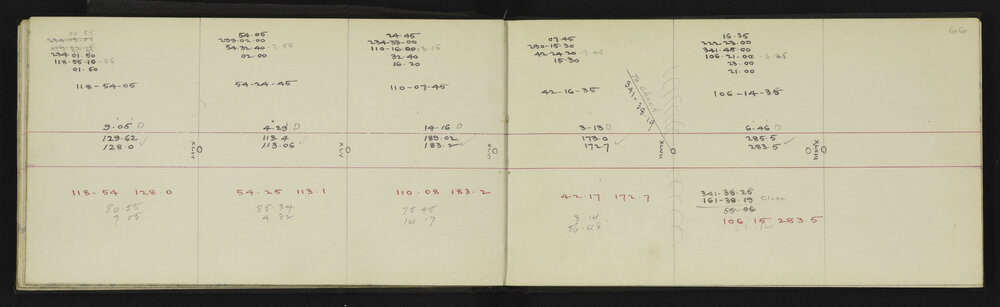 66
54.05
299-02-00
54-32-40-7-55
02-00
54-24-45
4°29' D
113.4
113.06 ✓
XLV
54-25 113-1
85.34
4.32
234.01.50
118-55-10-55
01-50
118-54-05
9-05' D
129-62
128.0 ✓
XLIV
118-54 128.0
80.55
9.05
24-45
234-33-00
110-16-00-8-15
32-40
16-20
110-07-45
14-16 D
189.02
183.2 ✓
XLVI
110-08 183-2
75.45
14.17
07-45
290-15-30
42-24-20-7-45
15-30
42-16-35
3-13 D
173.0
172.7 ✓
XLVII
42-17 172.7
3.14
86.46
To check
341-38-19
16-35
222-23-00
341-45-00
106-21-00-6-25
23-00
21-00
106-14-35
6-46 D
285.5
283.5 ✓
XLVIII
341-38-25
161-38-19 Close
106.15 283.5